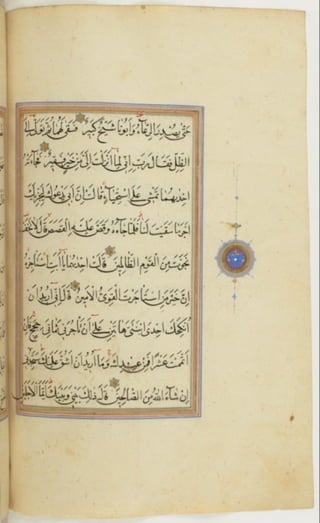 حَتَّى يُصْدِرَ الرِّعَآءُ وَأَبُونَا شَيْخٌ كَبِيرٌ فَسَقَى لَهُمَا ثُمَّ تَوَلَّى إِلَى
الظِّلِّ فَقَالَ رَبِّ إِنِّي لِمَا أَنْزَلْتَ إِلَيَّ مِنْ خَيْرٍ فَقِيرٌ فَجَآءَتْهُ
إِحْدَيهُمَا تَمْشِي عَلَى اسْتِحْيَآءٍ قَالَتْ إِنَّ أَبِي يَدْعُوكَ لِيَجْزِيَكَ
أَجْرَ مَا سَقَيْتَ لَنَا فَلَمَّا جَآءَهُ وَقَصَّ عَلَيْهِ الْقَصَصَ قَالَ لَا تَخَفْ
نَجَوْتَ مِنَ الْقَوْمِ الظَّالِمِينَ قَالَتْ إِحْدَيهُمَا يَا أَبَتِ اسْتَأْجِرْهُ
إِنَّ خَيْرَ مَنِ اسْتَأْجَرْتَ الْقَوِيُّ الْأَمِينُ قَالَ إِنِّي أُرِيدُ أَنْ
أُنْكِحَكَ إِحْدَى ابْنَتَيَّ هَاتَيْنِ عَلَى أَنْ تَأْجُرَنِي ثَمَانِيَ حِجَجٍ فَإِنْ
أَتْمَمْتَ عَشْرًا فَمِنْ عِنْدِكَ وَمَا أُرِيدُ أَنْ أَشُقَّ عَلَيْكَ سَتَجِدُنِي
إِنْ شَآءَ اللّٰهُ مِنَ الصَّالِحِينَ قَالَ ذٰلِكَ بَيْنِي وَبَيْنَكَ أَيَّمَا الْأَجَلَيْنِ